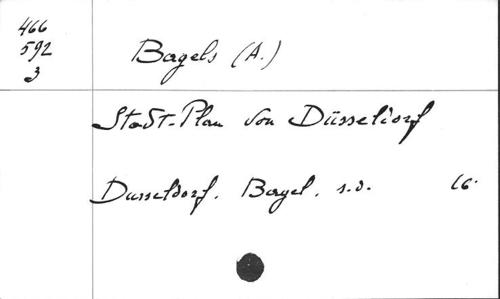 466
592
3
Bagels (A.)
Stadt-Plan von Düsseldorf
Dusseldorf. Bagel. s.d. 16.